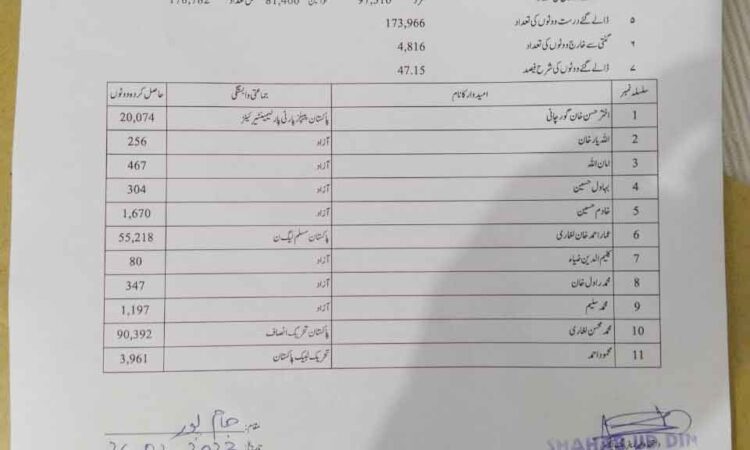 178,782 تعداد 81,466 خواتین 97,316 مرد
۵ ڈالے گئے درست ووٹوں کی تعداد 173,966
۶ گنتی سے خارج ووٹوں کی تعداد 4,816
۷ ڈالے گئے ووٹوں کی شرح فیصد 47.15
سلسلہ نمبر امیدوار کا نام جماعتی وابستگی حاصل کردہ ووٹوں
1 اختر حسن خان گورچانی پاکستان پیپلز پارٹی پارلیمینٹیرینز 20,074
2 اللہ یار خان آزاد 256
3 امان اللہ آزاد 467
4 بہاول حسین آزاد 304
5 خادم حسین آزاد 1,670
6 عمار احمد خان لغاری پاکستان مسلم لیگ ن 55,218
7 کلیم الدین ضیاء آزاد 80
8 محمد راول خان آزاد 347
9 محمد سلیم آزاد 1,197
10 محمد محسن لغاری پاکستان تحریک انصاف 90,392
11 محمود احمد تحریک لبیک پاکستان 3,961
مقام: جام پور
SHAHAB UD DIN